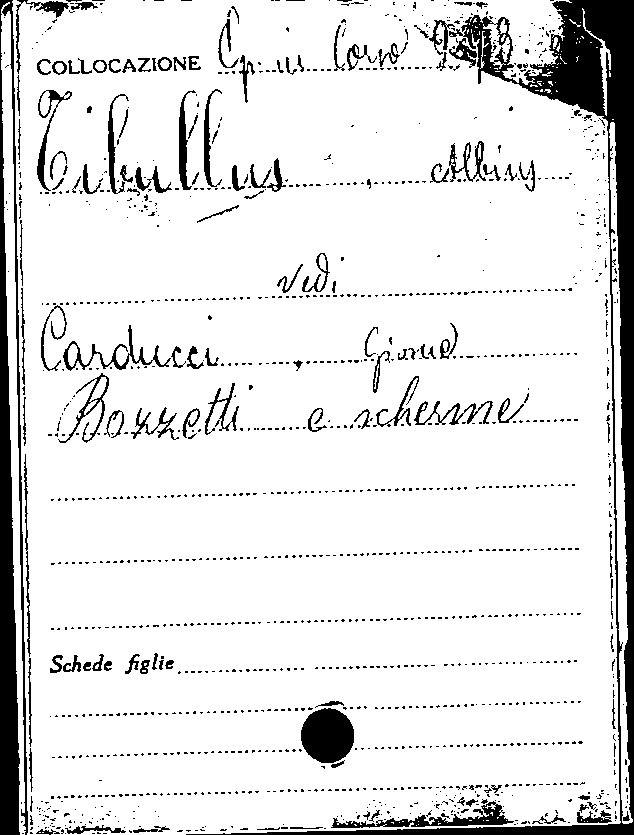 COLLOCAZIONE Op. in Corso
Tibullus, Albius
vedi
Carducci, Giosuè
Bozzetti e scherme
Schede figlie